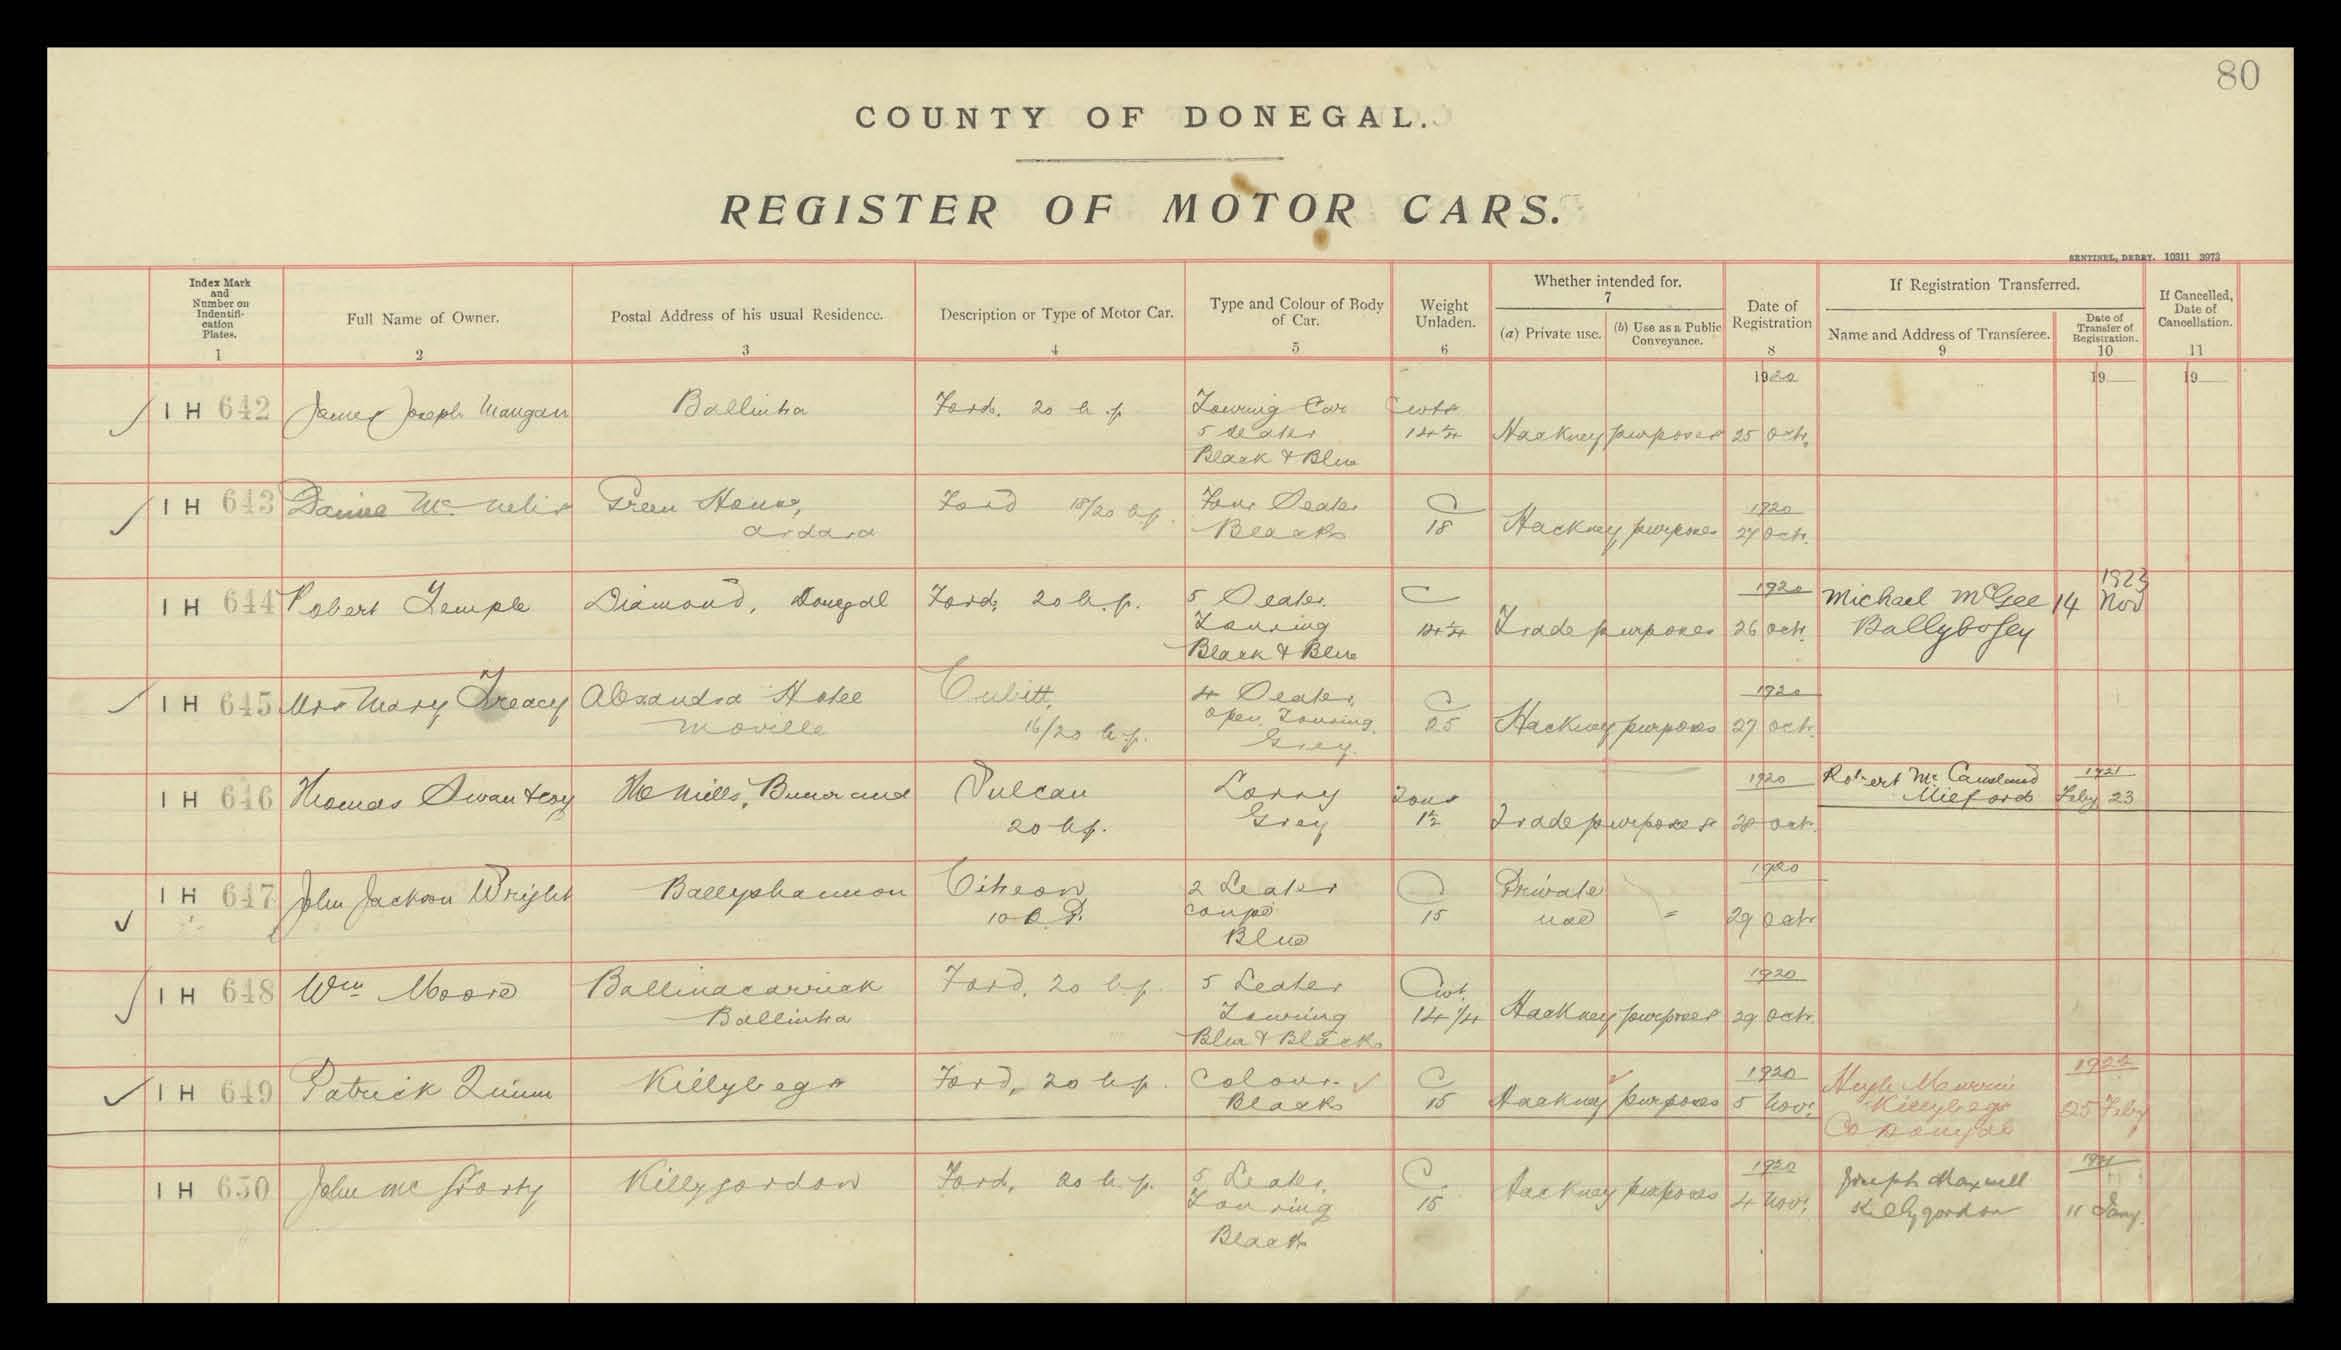 80
COUNTY OF DONEGAL.
REGISTER OF MOTOR CARS.
SENTINEL, DERRY. 10311 3973
Index Mark and Number on Indentifi-cation Plates. 1
Full Name of Owner. 2
Postal Address of his usual Residence. 3
Description or Type of Motor Car. 4
Type and Colour of Body of Car. 5
Weight Unladen. 6
Whether intended for. 7
(a) Private use.
(b) Use as a Public Conveyance.
Date of Registration 8
If Registration Transferred.
Name and Address of Transferee. 9
Date of Transfer of Registration. 10
If Cancelled, Date of Cancellation. 11
1920 19 19
IH 642 James Joseph Mangan Ballintra Ford, 20 h.p. Touring Car Cwts
5 seater 14¼ Hackney purposes 25 Oct.
Black & Blue
IH 643 Daniel Mc Nelis Green House, Ford 18/20 h.p. Four Seater C 1920
Ardara Black 18 Hackney purposes 27 Oct.
IH 644 Robert Temple Diamond, Donegal Ford, 20 h.p. 5 Seater C 1920 Michael McGee 14 Nov 1923
Touring 14¼ Trade purposes 26 Oct. Ballybofey
Black & Blue
IH 645 Mrs Mary Treacy Alexandra Hotel Cubitt, 4 Seater, C 1920
Moville 16/20 h.p. Open Touring 25 Hackney purposes 27 Oct.
Grey.
IH 646 Thomas Swan & Coy The Mills, Buncrana Vulcan Lorry Tons 1920 Robert Mc Causland 1921
20 h.p. Grey 1½ Trade purposes 28 Oct. Milford Feby 23
IH 647 John Jackson Wright Ballyshannon Citreon 2 Seater C Private 1920
10 h.p. Coupe 15 use 29 Oct
Blue
IH 648 Wm Moore Ballinacarrick Ford, 20 h.p. 5 Seater Cwt. 1920
Ballintra Touring 14 1/4 Hackney purposes 29 Oct.
Blue & Black
IH 649 Patrick Quinn Killybegs Ford, 20 h.p. Colour C 1920 Hugh 1922
Black 15 Hackney purposes 5 Nov. Killybegs 25 Feby
Co Donegal
IH 650 John Mc Killygordon Ford, 20 h.p. 5 Seater, C. 1920 Joseph Maxwell 1921
Touring 15 Hackney purposes 4 Nov. Killygordon 11 Jany.
Black